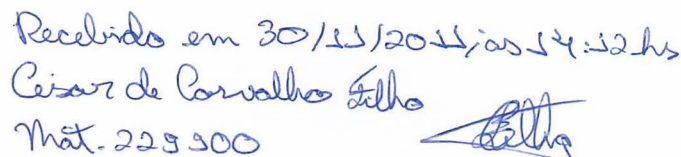 Recebido em 30/11/2011, às 14:12 hs
César de Carvalho Filho
Mat. 229900